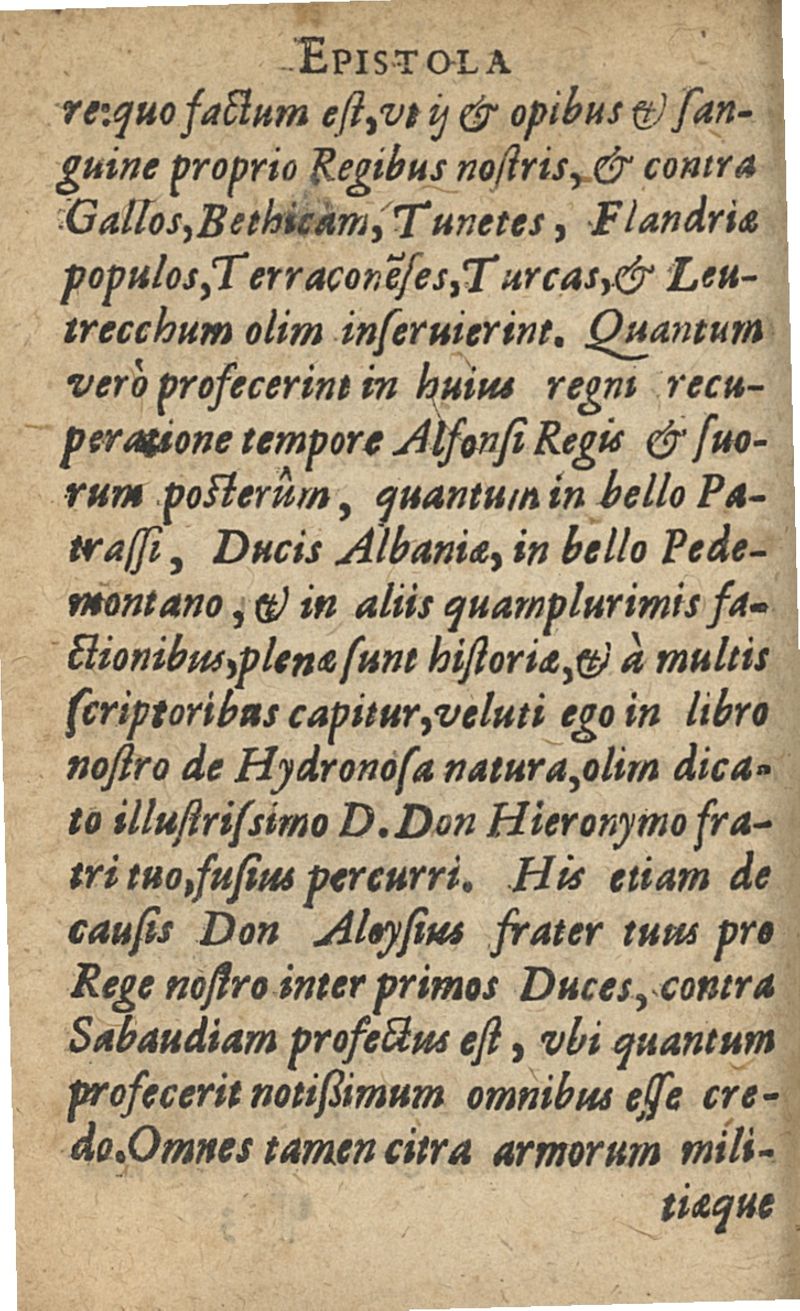 EPISTOLA
re: quo factum est, vt ij & opibus & san-
guine proprio Regibus nostris, & contra
Gallos, Bethicam, Tunetes, Flandriæ
populos, Terraconẽses, Turcas, & Leu-
trecchum olim inseruierint. Quantum
verò profecerint in huius regni recu-
peratione tempore Alfonsi Regis & suo-
rum posterûm, quantum in bello Pa-
trassi, Ducis Albaniæ, in bello Pede-
montano, & in aliis quamplurimis fa-
ctionibus, plenæ sunt historiæ, & à multis
scriptoribus capitur, veluti ego in libro
nostro de Hydronosa natura, olim dica-
to illustrissimo D. Don Hieronymo fra-
tri tuo, fusius percurri. His etiam de
causis Don Aloysius frater tuus pro
Rege nostro inter primos Duces, contra
Sabaudiam profectus est, vbi quantum
profecerit notißimum omnibus esse cre-
do. Omnes tamen citra armorum mili-
tiæque